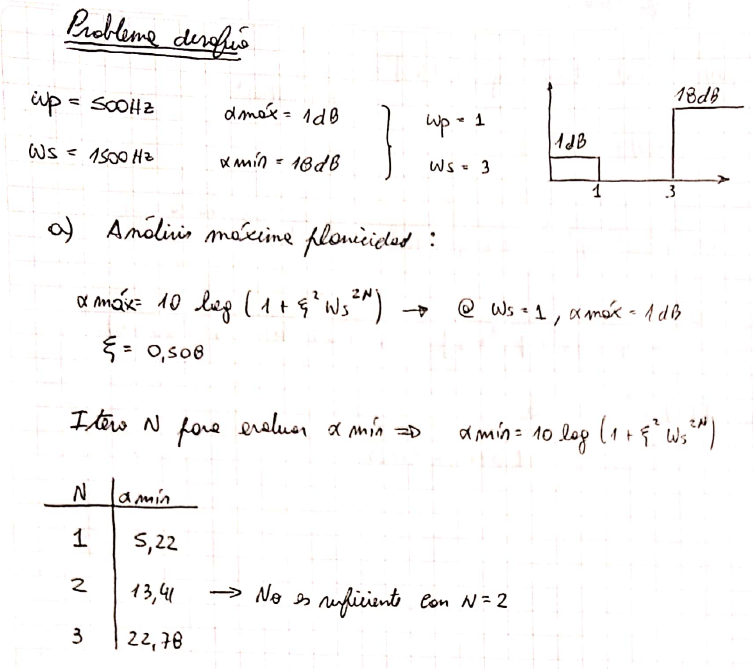 Problema desafío
wp = 500Hz αmáx = 1dB wp = 1
ws = 1500Hz αmín = 18dB ws = 3
18dB
1dB
1 3
a) Análisis máxima planicidad :
αmáx = 10 log (1 + ξ² Ws²ᴺ) → @ Ws = 1, αmáx = 1dB
ξ = 0,508
Itero N para evaluar αmín ⇒ αmín = 10 log (1 + ξ² Ws²ᴺ)
N αmín
1 5,22
2 13,41 → No es suficiente con N = 2
3 22,78